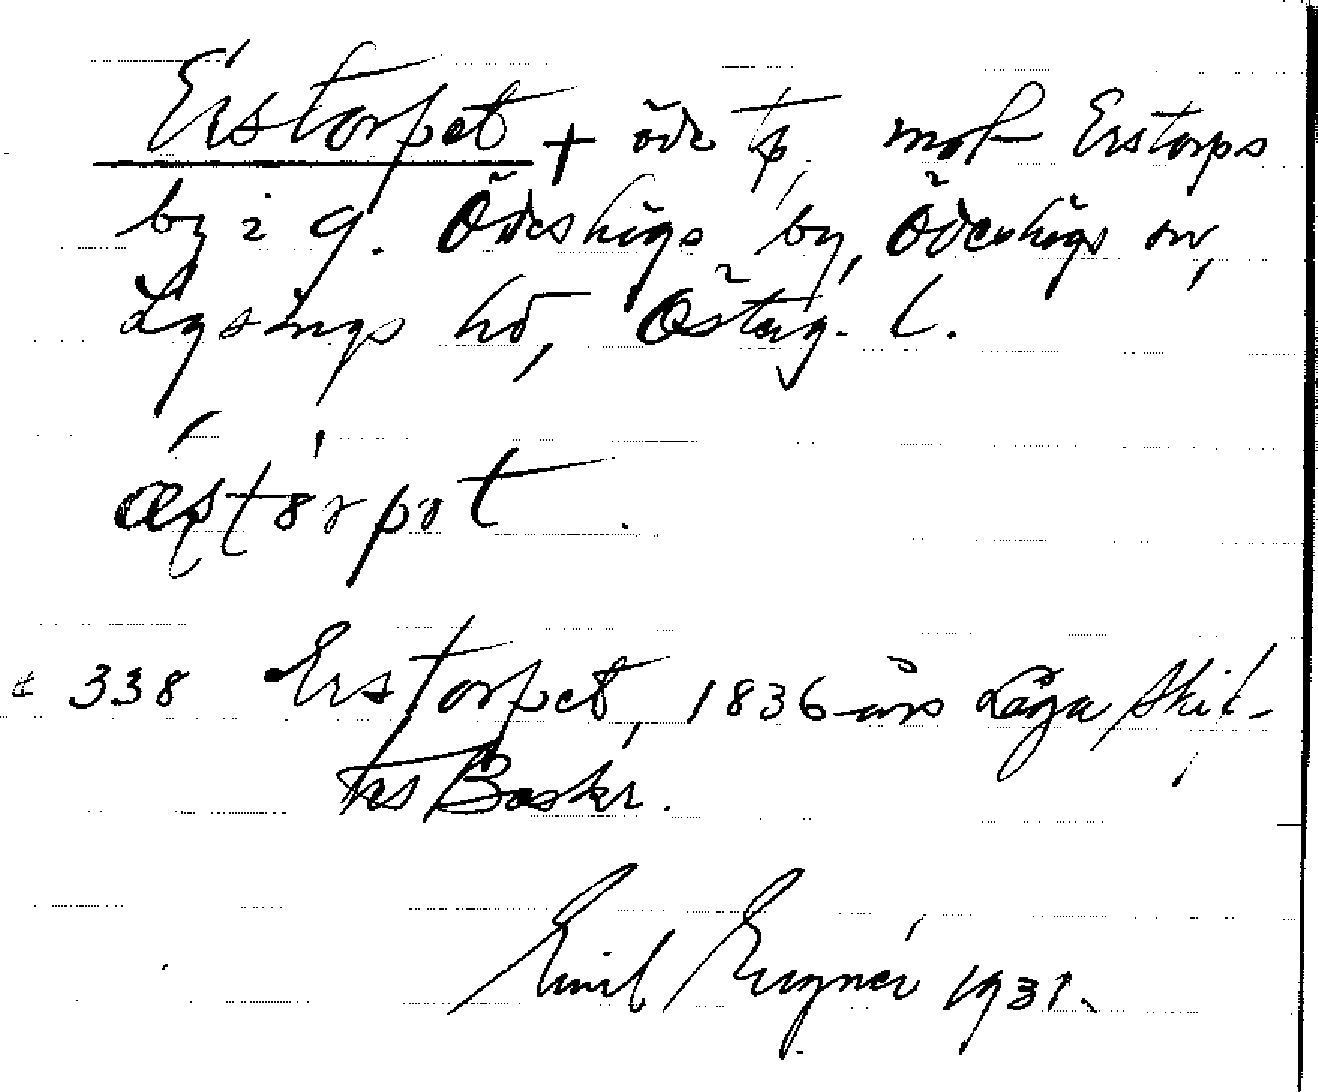 Erstorpet + öde tp. mot Erstorps
by i g. Ödeshögs by, Ödeshögs sn,
Lysings hd, Österg. l.
338 Erstorpet, 1836 års Laga Skif-
tes Beskr.
Emil 1931.